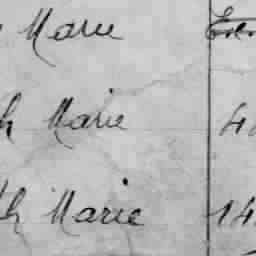 Marie
h Marie 4
th Marie 14